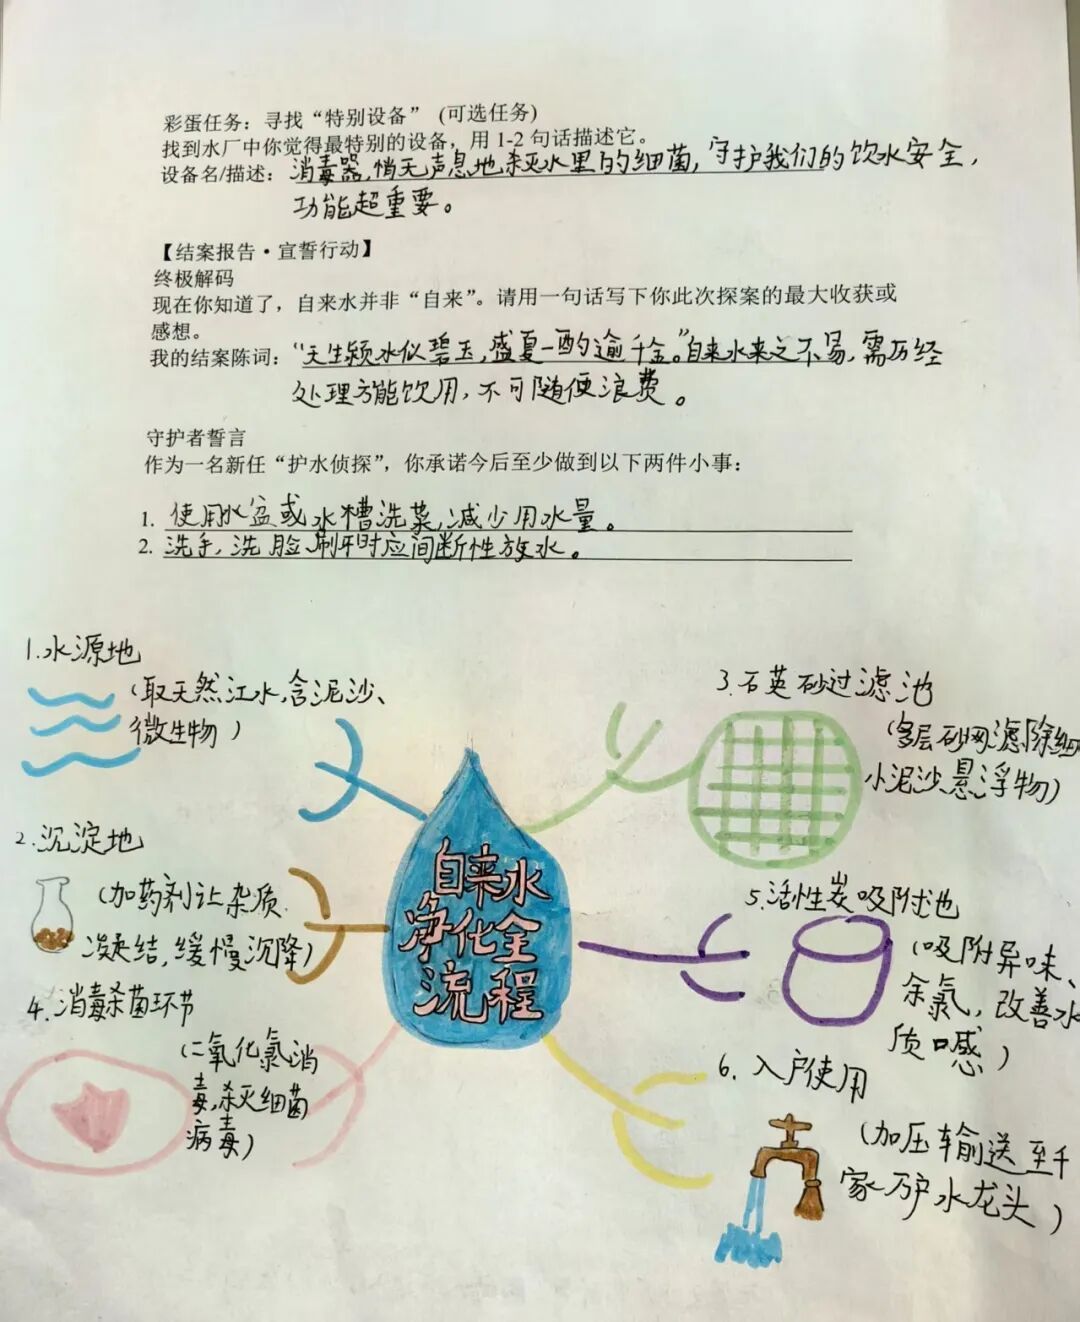 彩蛋任务：寻找“特别设备” (可选任务)
找到水厂中你觉得最特别的设备，用 1-2 句话描述它。
设备名/描述：消毒器,悄无声息地杀灭水里的细菌,守护我们的饮水安全,
功能超重要。
【结案报告·宣誓行动】
终极解码
现在你知道了，自来水并非“自来”。请用一句话写下你此次探案的最大收获或
感想。
我的结案陈词：“天生颍水似碧玉,盛夏一酌逾千金。”自来水来之不易,需历经
处理方能饮用,不可随便浪费。
守护者誓言
作为一名新任“护水侦探”，你承诺今后至少做到以下两件小事：
1. 使用水盆或水槽洗菜,减少用水量。
2. 洗手,洗脸,刷牙时应间断性放水。
1.水源地
(取天然江水,含泥沙、
微生物)
2.沉淀地
(加药剂让杂质
凝结,缓慢沉降)
3.石英砂过滤池
(多层砂网滤除细
小泥沙悬浮物)
4.消毒杀菌环节
(二氧化氯消
毒,杀灭细菌
病毒)
自来水
净化全
流程
5.活性炭吸附池
(吸附异味、
余氯，改善水
质口感)
6.入户使用
(加压输送至千
家万户水龙头)